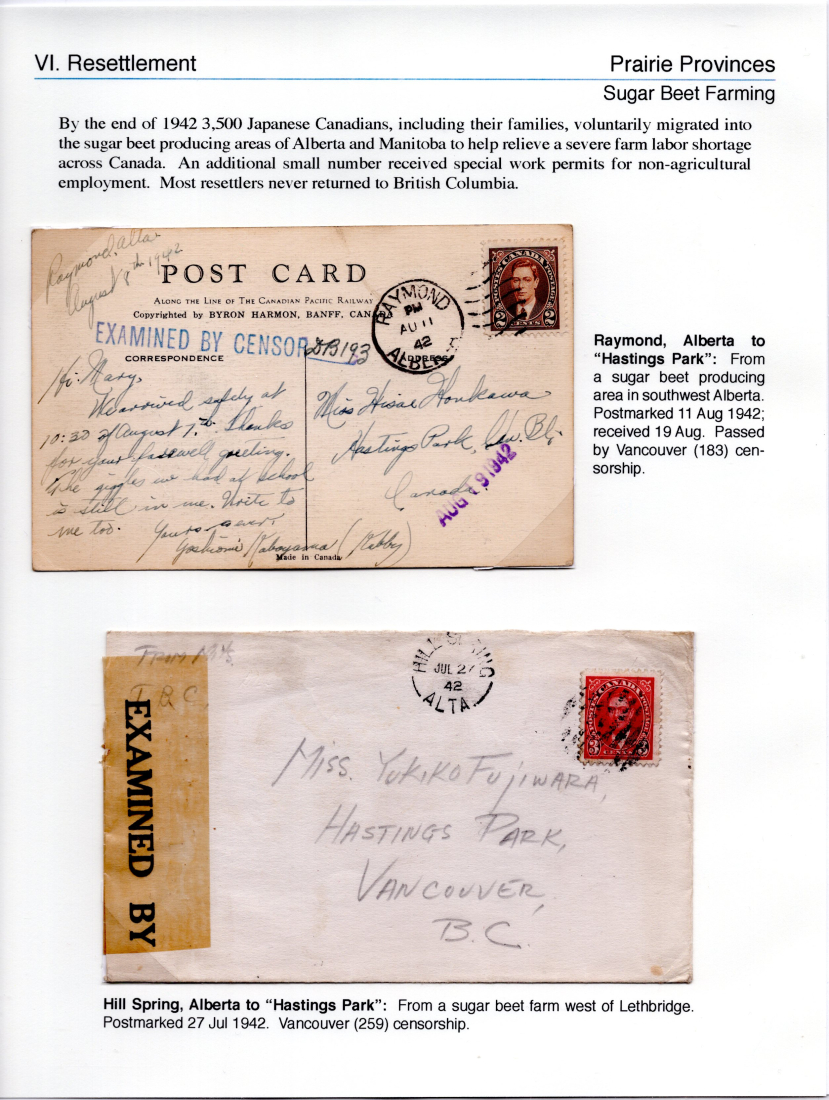 VI. Resettlement
Prairie Provinces
Sugar Beet Farming
By the end of 1942 3,500 Japanese Canadians, including their families, voluntarily migrated into
the sugar beet producing areas of Alberta and Manitoba to help relieve a severe farm labor shortage
across Canada. An additional small number received special work permits for non-agricultural
employment. Most resettlers never returned to British Columbia.
Raymond, Alta.
August 8th 1942
POST CARD
ALONG THE LINE OF THE CANADIAN PACIFIC RAILWAY
Copyrighted by BYRON HARMON, BANFF, CANADA
EXAMINED BY CENSOR
DB193
CORRESPONDENCE
ADDRESS
RAYMOND
PM
AU 11
42
ALBERTA
POSTES CANADA POSTAGE
2 CENTS 2
Hi Mary,
We arrived safely at
10:30 of August 7th. Thanks
for your farewell greeting.
The giggles we had at school
is still in me. Write to
me too.
Yours ever,
Yoshiomi Kabayama (Kibby)
Miss Hisae
Hastings Park, Van. B.C.
Canada.
AUG 19 1942
Made in Canada
Raymond, Alberta to
“Hastings Park”: From
a sugar beet producing
area in southwest Alberta.
Postmarked 11 Aug 1942;
received 19 Aug. Passed
by Vancouver (183) cen-
sorship.
FROM
EXAMINED BY
HILL SPRING
JUL 27
42
ALTA.
POSTES CANADA POSTAGE
3 CENTS 3
MISS. YUKIKO FUJIWARA,
HASTINGS PARK,
VANCOUVER,
B.C.
Hill Spring, Alberta to “Hastings Park”: From a sugar beet farm west of Lethbridge.
Postmarked 27 Jul 1942. Vancouver (259) censorship.